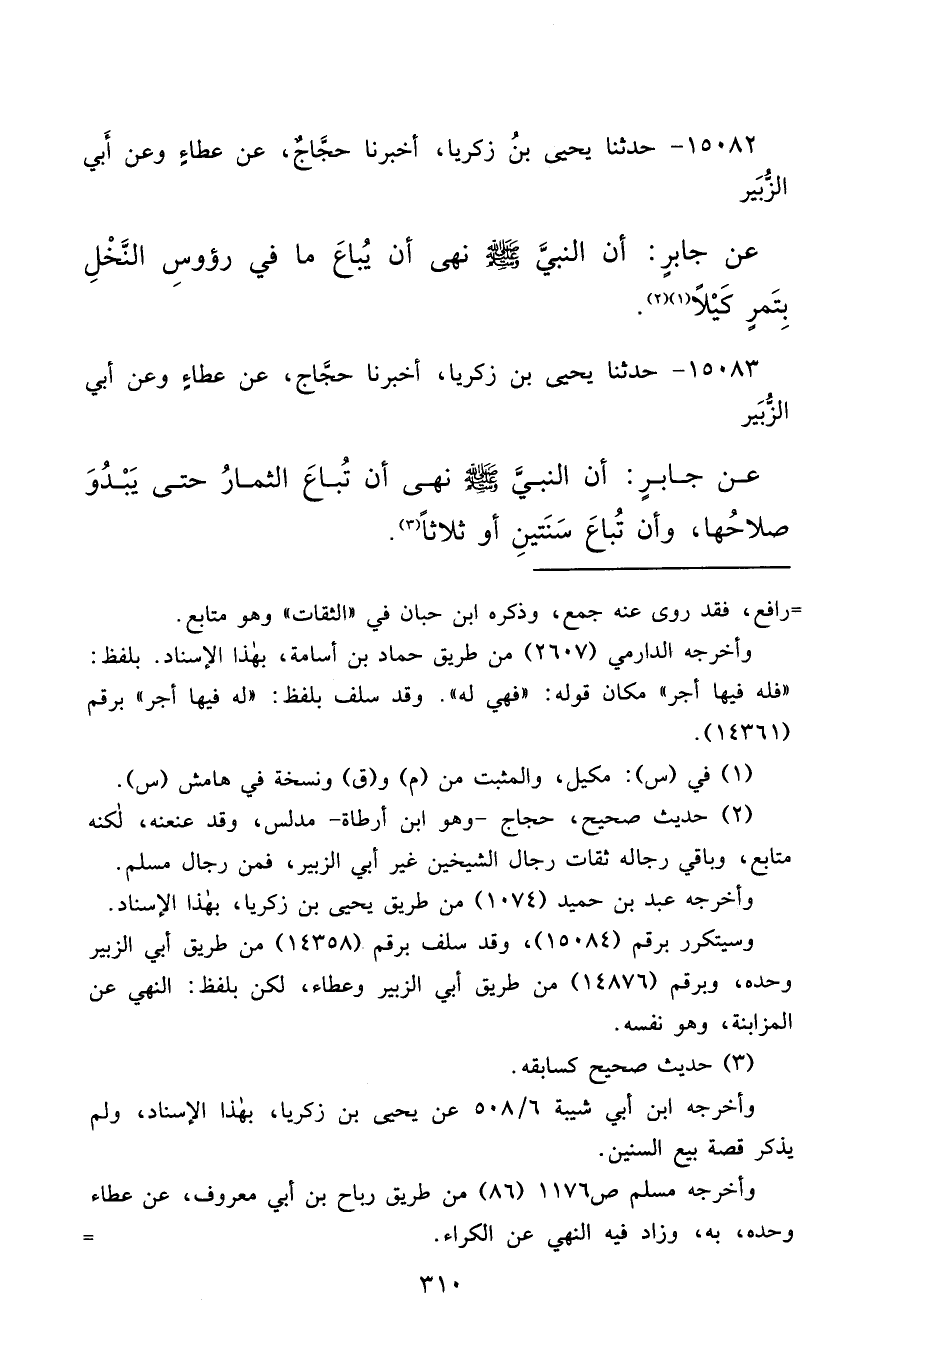 ١٥٠٨٢- حدثنا يحيى بنُ زكريا، أخبرنا حجَّاجٌ، عن عطاءٍ وعن أَبي
الزُّبَير
عن جابرٍ: أن النبيَّ ﷺ نهى أن يُباعَ ما في رؤوسِ النَّخْلِ
بِتَمرٍ كَيْلاً(١)(٢).
١٥٠٨٣- حدثنا يحيى بن زكريا، أخبرنا حجَّاج، عن عطاءٍ وعن أبي
الزُّبَير
عـن جـابـرٍ: أن النبـيَّ ﷺ نهـى أن تُبـاعَ الثمـارُ حتـى يَبْـدُوَ
صلاحُها، وأن تُباعَ سَنَتينِ أو ثلاثاً(٣).
=رافع، فقد روى عنه جمع، وذكره ابن حبان في «الثقات» وهو متابع.
وأخرجه الدارمي (٢٦٠٧) من طريق حماد بن أسامة، بهٰذا الإسناد. بلفظ:
«فله فيها أجر» مكان قوله: «فهي له». وقد سلف بلفظ: «له فيها أجر» برقم
(١٤٣٦١).
(١) في (س): مكيل، والمثبت من (م) و(ق) ونسخة في هامش (س).
(٢) حديث صحيح، حجاج -وهو ابن أرطاة- مدلس، وقد عنعنه، لٰكنه
متابع، وباقي رجاله ثقات رجال الشيخين غير أبي الزبير، فمن رجال مسلم.
وأخرجه عبد بن حميد (١٠٧٤) من طريق يحيى بن زكريا، بهٰذا الإسناد.
وسيتكرر برقم (١٥٠٨٤)، وقد سلف برقم (١٤٣٥٨) من طريق أبي الزبير
وحده، وبرقم (١٤٨٧٦) من طريق أبي الزبير وعطاء، لكن بلفظ: النهي عن
المزابنة، وهو نفسه.
(٣) حديث صحيح كسابقه.
وأخرجه ابن أبي شيبة ٥٠٨/٦ عن يحيى بن زكريا، بهٰذا الإسناد، ولم
يذكر قصة بيع السنين.
وأخرجه مسلم ص١١٧٦ (٨٦) من طريق رباح بن أبي معروف، عن عطاء
وحده، به، وزاد فيه النهي عن الكراء. =
٣١٠